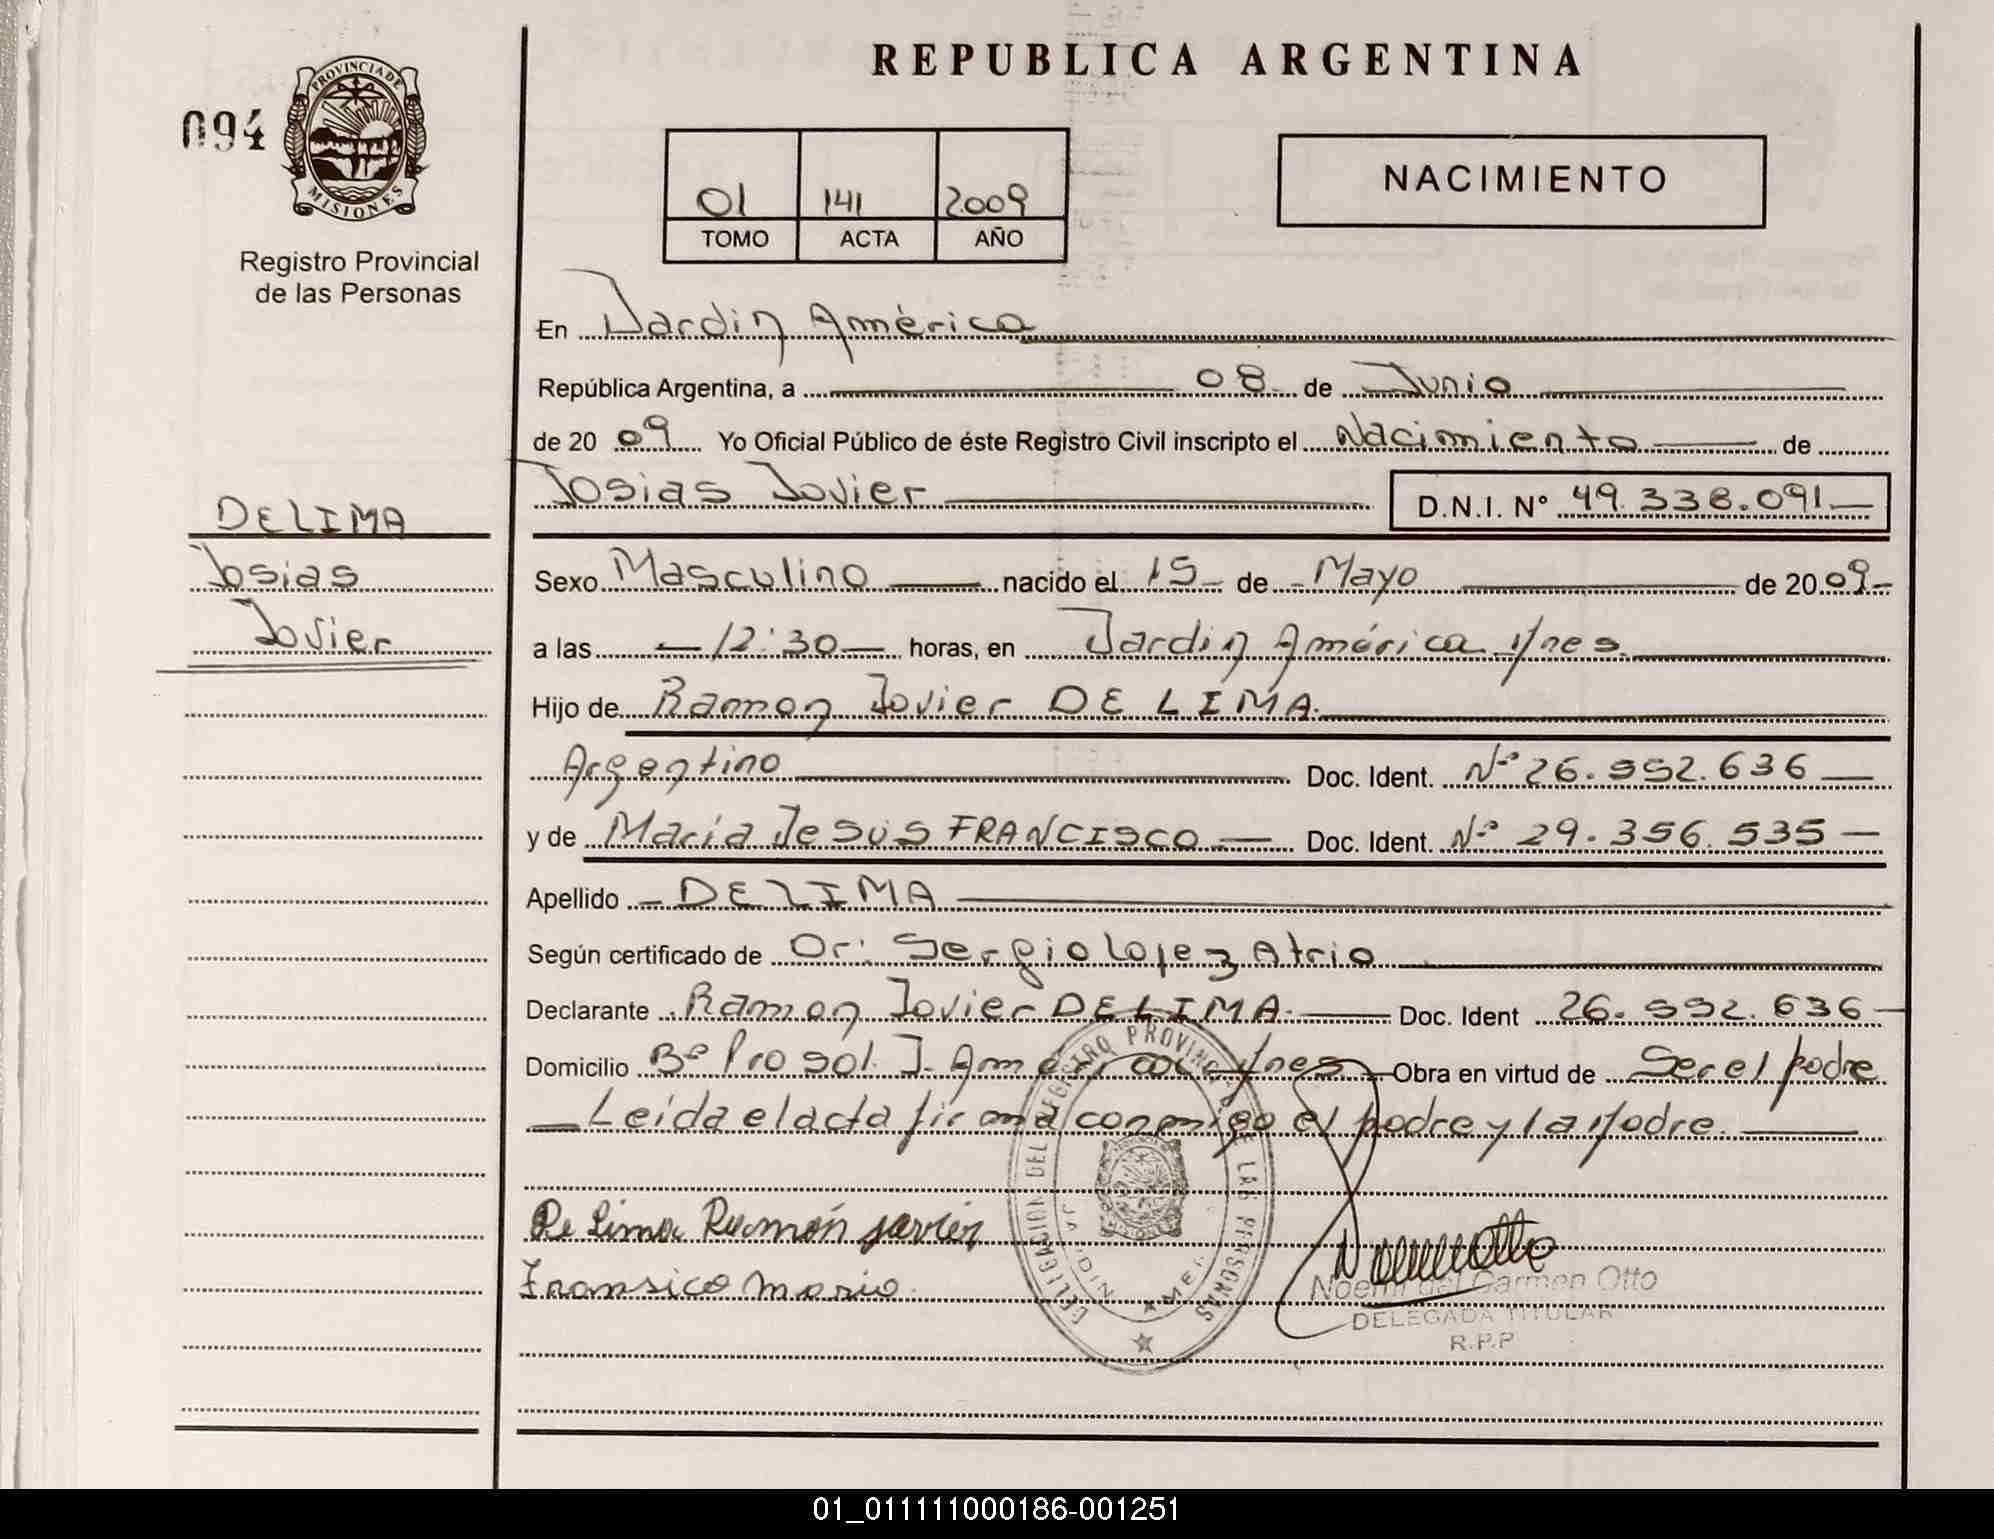 REPUBLICA ARGENTINA
094
PROVINCIA DE
MISIONES
Registro Provincial
de las Personas
01 141 2009
TOMO ACTA AÑO
NACIMIENTO
En Jardin América
República Argentina, a 08 de Junio
de 20 09 Yo Oficial Público de éste Registro Civil inscripto el Nacimiento de
Josias Javier D.N.I. N° 49.338.091
DELIMA
Josias
Javier
Sexo Masculino nacido el 15 de Mayo de 2009
a las 12:30 horas, en Jardin América Mnes
Hijo de Ramon Javier DE LIMA
Argentino Doc. Ident. N° 26.992.636
y de María Jesus FRANCISCO Doc. Ident. N° 29.356.535
Apellido DELIMA
Según certificado de Dr: Sergio Lopez Atrio
Declarante Ramon Javier DELIMA Doc. Ident 26.992.636
Domicilio B° Prosol. J. América Mnes Obra en virtud de Ser el padre
Leída el acta firma conmigo el padre y la Madre.
De Lima Ramón javier
Fransico Maria
DELEGACION DEL REGISTRO PROVINCIAL DE LAS PERSONAS
Noemi del Carmen Otto
DELEGADA TITULAR
R.P.P
01_011111000186-001251